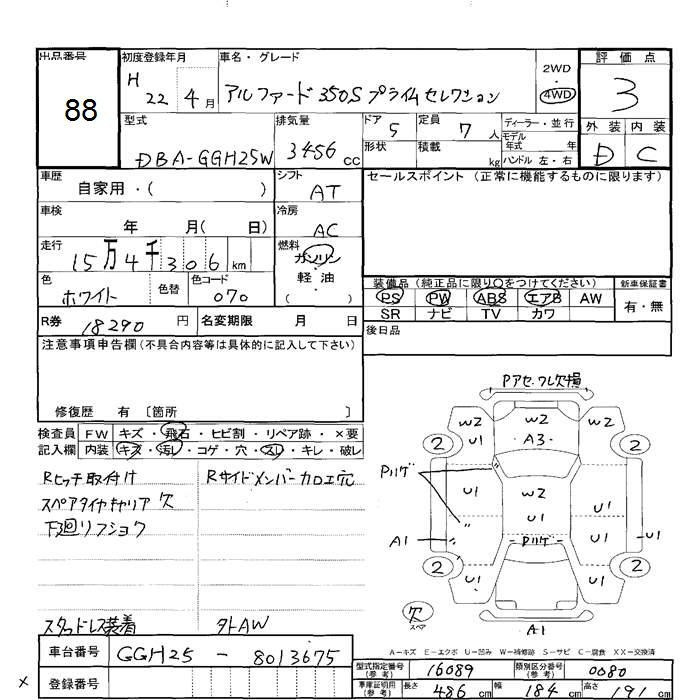 出品番号
88
初度登録年月
H 22 4月
車名・グレード
アルファード 350S プライムセレクション
2WD
・
4WD
評価点
3
外装 内装
D C
型式
DBA-GGH25W
排気量
3456 cc
ドア 5
定員 7 人
形状
積載 kg
ディーラー・並行
モデル年式 年
ハンドル 左・右
車歴
自家用・( )
シフト
AT
セールスポイント(正常に機能するものに限ります)
車検
年 月( 日)
冷房
AC
走行
15万4千306 km
燃料
ガソリン
軽・油
( )
色
ホワイト
色替
色コード
070
装備品(純正品に限り○をつけてください)
PS PW ABS エアB AW
SR ナビ TV カワ
新車保証書
有・無
R券 18290 円
名変期限 月 日
後日品
注意事項申告欄(不具合内容等は具体的に記入して下さい)
修復歴 有 〔箇所 〕
検査員記入欄
FW キズ・飛石・ヒビ割・リペア跡・×要
内装 キズ・汚レ・コゲ・穴・スレ・キレ・破レ
Rヒッチ取付け
スペアタイヤキャリア欠
下廻リフショク
Rサイドメンバーカロエ穴
スタッドレス装着 外AW
Pアセ、フレ欠損
W2 U1
W2
A3
W2 U1
2 2
Pハゲ
U1
W2
U1
U1
A1
Pハゲ
U1
U1
2 2
U1
U1
欠
スペア
A1
A-キズ E-エクボ U-凹み W-補修跡 S-サビ C-腐食 XX-交換済
車台番号
GGH25 - 8013675
登録番号
x
型式指定番号(参考) 16089
類別区分番号(参考) 0080
車庫証明用(参考)
長さ 486 cm
幅 184 cm
高さ 191 cm